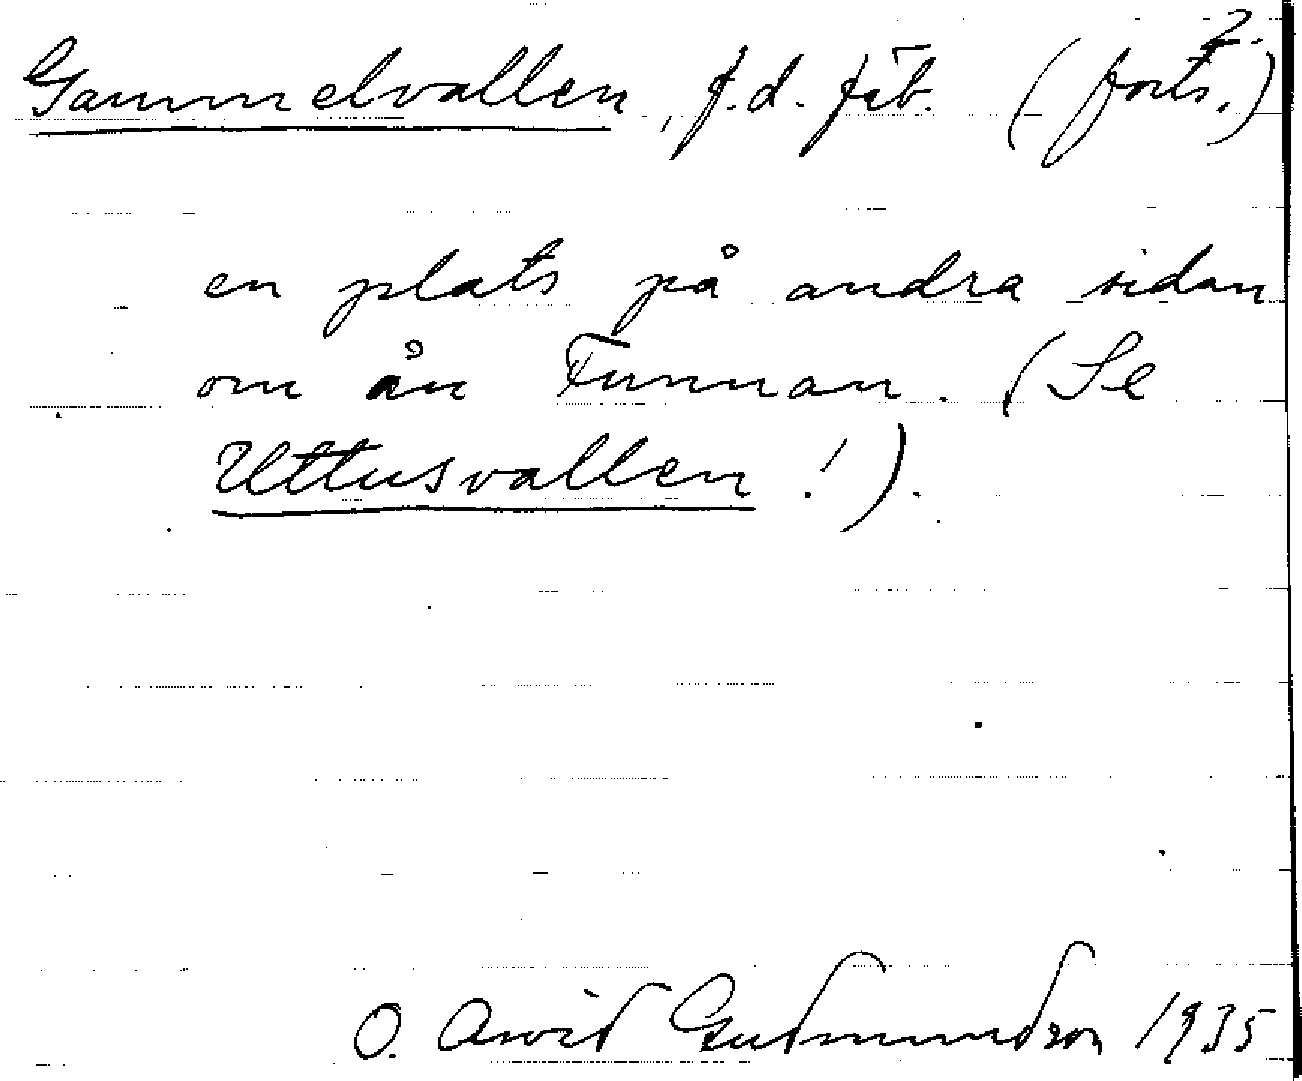 2.
Gammelvallen, f.d. fäb. (forts.)
en plats på andra sidan
om ån Tunnan. (Se
Uttusvallen!).
O. Arvid Gudmundson 1935